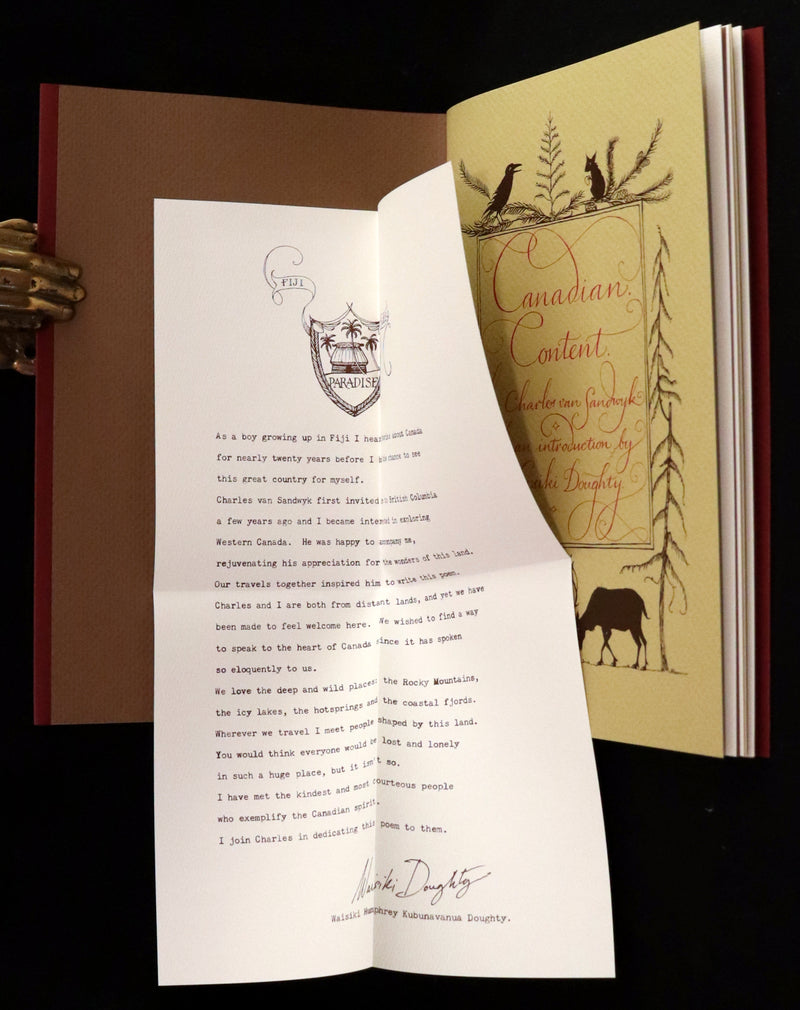 FIJI
PARADISE
As a boy growing up in Fiji I hear stories about Canada
for nearly twenty years before I chance to see
this great country for myself.
Charles van Sandwyk first invited British Columbia
a few years ago and I became interested in exploring
Western Canada. He was happy to accompany me,
rejuvenating his appreciation for the wonders of this land.
Our travels together inspired him to write this poem.
Charles and I are both from distant lands, and yet we have
been made to feel welcome here. We wished to find a way
to speak to the heart of Canada since it has spoken
so eloquently to us.
We love the deep and wild places: the Rocky Mountains,
the icy lakes, the hotsprings and the coastal fjords.
Wherever we travel I meet people shaped by this land.
You would think everyone would be lost and lonely
in such a huge place, but it isn't so.
I have met the kindest and most courteous people
who exemplify the Canadian spirit.
I join Charles in dedicating this poem to them.
Waisiki Doughty
Waisiki Humphrey Kubunavanua Doughty.
Canadian.
Content.
Charles van Sandwyk
an introduction by
Doughty.